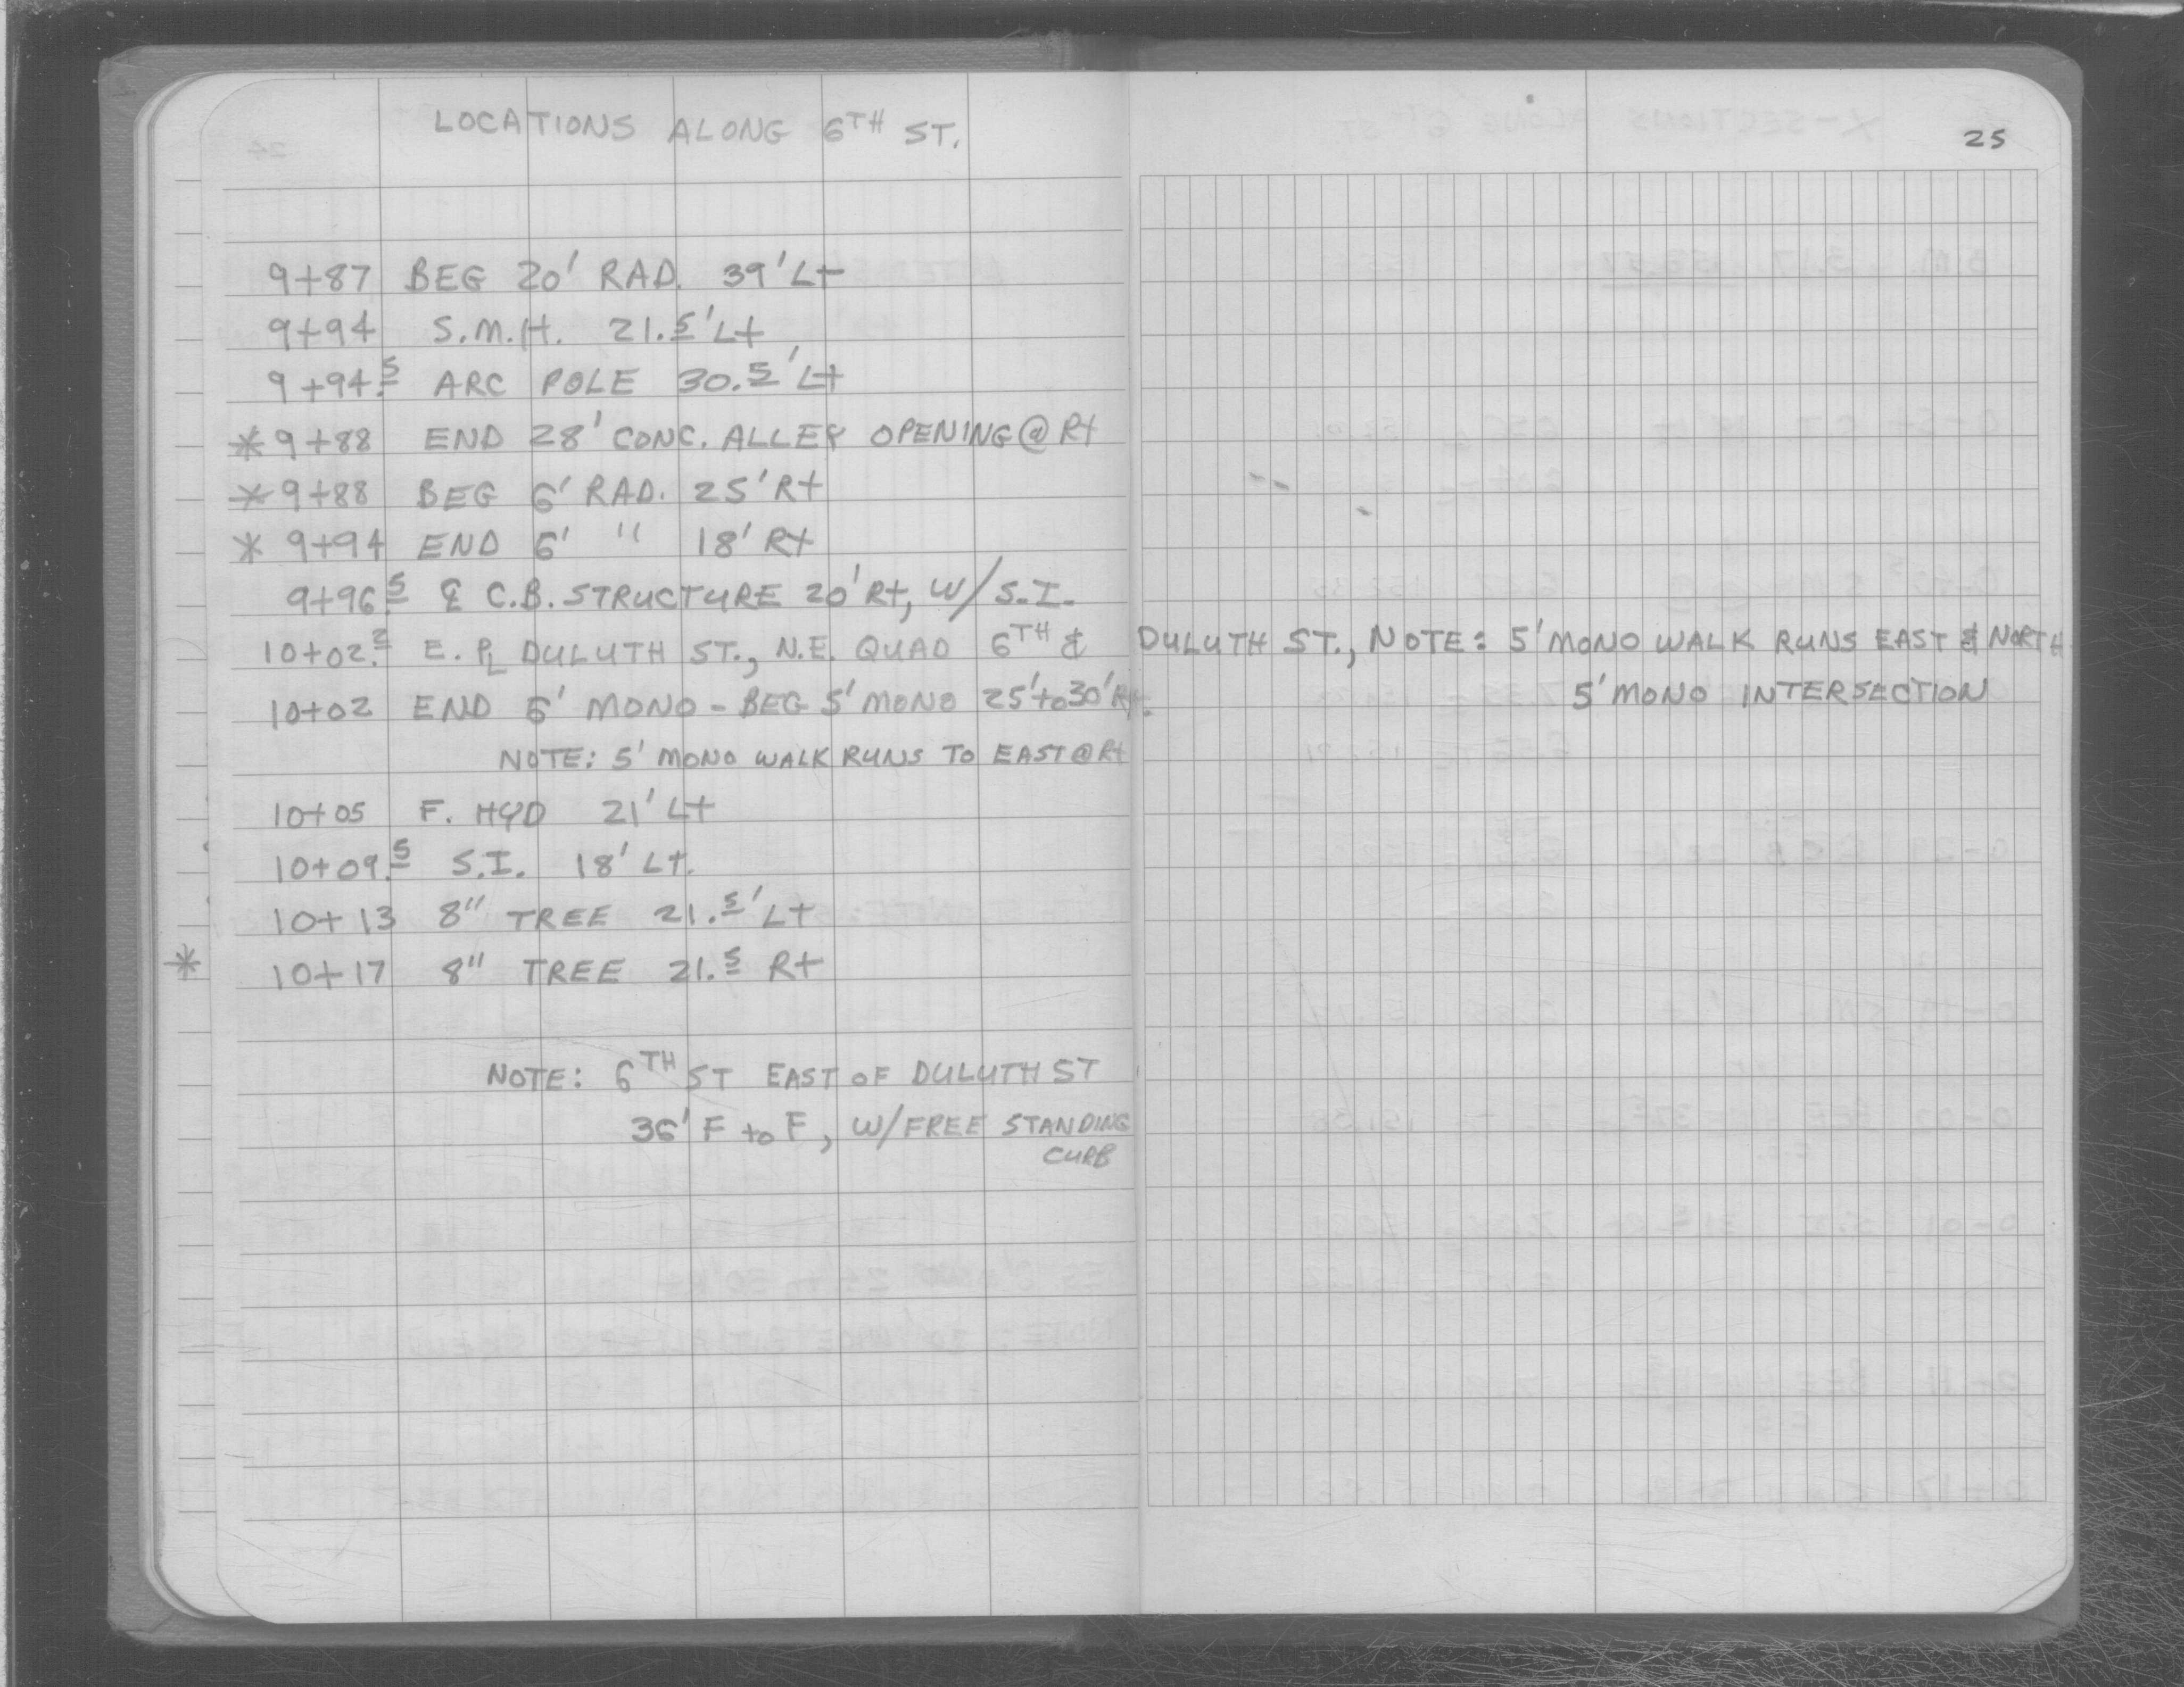 LOCATIONS ALONG 6TH ST.
25
9+87 BEG 20' RAD. 39' Lt
9+94 S.M.H. 21.5' Lt
9+94.5 ARC POLE 30.5' Lt
* 9+88 END 28' CONC. ALLEY OPENING @ Rt
* 9+88 BEG 6' RAD. 25' Rt
* 9+94 END 6' " 18' Rt
9+96.5 ℄ C.B. STRUCTURE 20' Rt, W/ S.I.
10+02.2 E. PL DULUTH ST., N.E. QUAD 6TH & DULUTH ST., NOTE: 5' MONO WALK RUNS EAST & NORTH
10+02 END 6' MONO - BEG 5' MONO 25' to 30' Rt. 5' MONO INTERSECTION
NOTE: 5' MONO WALK RUNS TO EAST @ Rt
10+05 F. HYD 21' Lt
10+09.5 S.I. 18' Lt.
10+13 8" TREE 21.5' Lt
* 10+17 8" TREE 21.5 Rt
NOTE: 6TH ST EAST OF DULUTH ST
36' F to F, W/ FREE STANDING
CURB